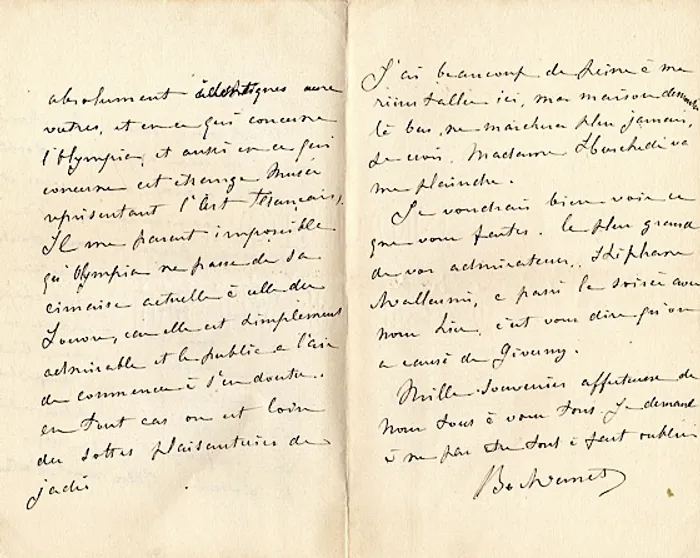 absolument identiques aux
vôtres, et en ce qui concerne
l'Olympia, et aussi en ce qui
concerne cet étrange Musée
représentant l'Art Français.
Il me parait impossible
qu'Olympia ne passe de sa
cimaise actuelle à celle du
Louvre, car elle est simplement
admirable et le public a l'air
de commencer à s'en douter.
en tout cas on est loin
des sottes plaisanteries de
jadis
J'ai beaucoup de peine à me
réinstaller ici, ma maison
là bas, ne marchera plus jamais,
je crois. Madame Hoschedé va
me plaindre.
Je voudrais bien voir ce
que vous faites. Le plus grand
de vos admirateurs, Stéphane
Mallarmé, a passé la soirée avec
nous hier, c'est vous dire qu'on
a causé de Giverny.
Mille souvenirs affectueux de
nous tous à vous tous. Je demande
à ne pas être tout à fait oublié